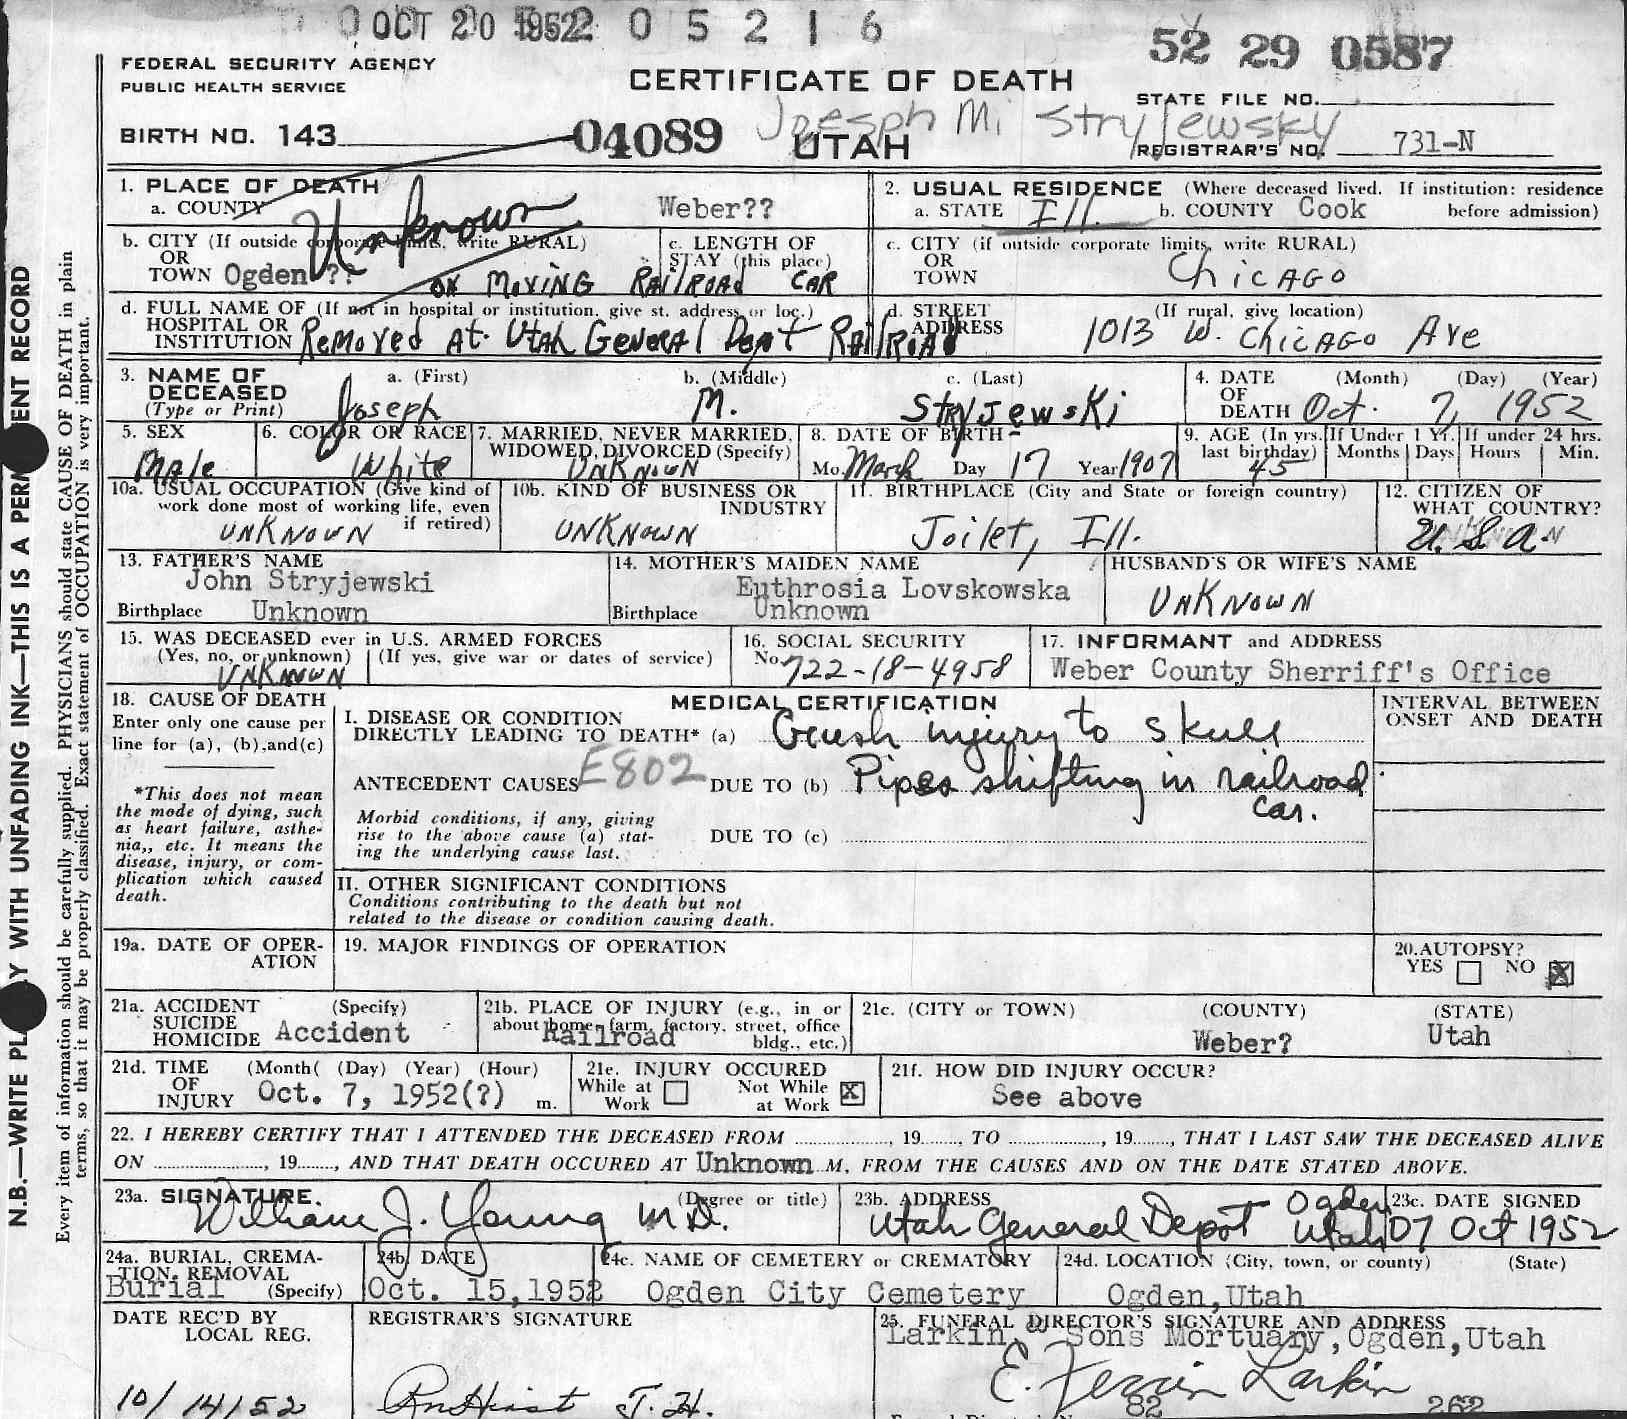 OCT 20 1952 0 5 2 1 6
52 29 0587
FEDERAL SECURITY AGENCY
PUBLIC HEALTH SERVICE
CERTIFICATE OF DEATH
STATE FILE NO.
Joesph Mi Stryjewsky
BIRTH NO. 143 04089 UTAH REGISTRAR'S NO. 731-N
1. PLACE OF DEATH
a. COUNTY Weber??
Unknown
2. USUAL RESIDENCE (Where deceased lived. If institution: residence
a. STATE Ill. b. COUNTY Cook before admission)
b. CITY (If outside corporate limits, write RURAL)
OR
TOWN Ogden ??
c. LENGTH OF
STAY (this place)
on Moving Railroad Car
c. CITY (if outside corporate limits, write RURAL)
OR
TOWN Chicago
d. FULL NAME OF (If not in hospital or institution, give st. address or loc.)
HOSPITAL OR
INSTITUTION Removed At. Utah General Dept Railroad
d. STREET (If rural, give location)
ADDRESS 1013 W. Chicago Ave
3. NAME OF
DECEASED
(Type or Print)
a. (First) Joseph
b. (Middle) M.
c. (Last) Stryjewski
4. DATE (Month) (Day) (Year)
OF
DEATH Oct. 7, 1952
5. SEX
Male
6. COLOR OR RACE
White
7. MARRIED, NEVER MARRIED,
WIDOWED, DIVORCED (Specify)
Unknown
8. DATE OF BIRTH
Mo. March Day 17 Year 1907
9. AGE (In yrs. last birthday)
45
If Under 1 Yr.
Months Days
If under 24 hrs.
Hours Min.
10a. USUAL OCCUPATION (Give kind of
work done most of working life, even
if retired)
Unknown
10b. KIND OF BUSINESS OR
INDUSTRY
Unknown
11. BIRTHPLACE (City and State or foreign country)
Joilet, Ill.
12. CITIZEN OF
WHAT COUNTRY?
U.S.A.
13. FATHER'S NAME
John Stryjewski
Birthplace Unknown
14. MOTHER'S MAIDEN NAME
Euthrosia Lovskowska
Birthplace Unknown
HUSBAND'S OR WIFE'S NAME
Unknown
15. WAS DECEASED ever in U.S. ARMED FORCES
(Yes, no, or unknown) (If yes, give war or dates of service)
Unknown
16. SOCIAL SECURITY
No. 722-18-4958
17. INFORMANT and ADDRESS
Weber County Sherriff's Office
18. CAUSE OF DEATH
Enter only one cause per
line for (a), (b), and (c)
*This does not mean
the mode of dying, such
as heart failure, asthe-
nia,, etc. It means the
disease, injury, or com-
plication which caused
death.
MEDICAL CERTIFICATION
I. DISEASE OR CONDITION
DIRECTLY LEADING TO DEATH* (a) Crush injury to skull
ANTECEDENT CAUSES E802 DUE TO (b) Pipes shifting in railroad
car.
Morbid conditions, if any, giving
rise to the above cause (a) stat-
ing the underlying cause last.
DUE TO (c)
II. OTHER SIGNIFICANT CONDITIONS
Conditions contributing to the death but not
related to the disease or condition causing death.
INTERVAL BETWEEN
ONSET AND DEATH
19a. DATE OF OPER-
ATION
19. MAJOR FINDINGS OF OPERATION
20. AUTOPSY?
YES NO X
21a. ACCIDENT (Specify)
SUICIDE
HOMICIDE Accident
21b. PLACE OF INJURY (e.g., in or
about home, farm, factory, street, office
bldg., etc.)
Railroad
21c. (CITY or TOWN) (COUNTY) (STATE)
Weber? Utah
21d. TIME (Month( (Day) (Year) (Hour)
OF
INJURY Oct. 7, 1952(?) m.
21e. INJURY OCCURED
While at
Work
Not While
at Work X
21f. HOW DID INJURY OCCUR?
See above
22. I HEREBY CERTIFY THAT I ATTENDED THE DECEASED FROM , 19 , TO , 19 , THAT I LAST SAW THE DECEASED ALIVE
ON , 19 , AND THAT DEATH OCCURED AT Unknown M, FROM THE CAUSES AND ON THE DATE STATED ABOVE.
23a. SIGNATURE. (Degree or title)
William J. Young M.D.
23b. ADDRESS
Utah General Depot Ogden Utah
23c. DATE SIGNED
07 Oct 1952
24a. BURIAL, CREMA-
TION, REMOVAL
Burial (Specify)
24b. DATE
Oct. 15, 1952
24c. NAME OF CEMETERY or CREMATORY
Ogden City Cemetery
24d. LOCATION (City, town, or county) (State)
Ogden, Utah
DATE REC'D BY
LOCAL REG.
10/14/52
REGISTRAR'S SIGNATURE
25. FUNERAL DIRECTOR'S SIGNATURE AND ADDRESS
Larkin & Sons Mortuary, Ogden, Utah
E. Ferrin Larkin
82 262
N.B.—WRITE WITH UNFADING INK—THIS IS A RECORD
Every item of information should be carefully supplied. PHYSICIANS should state CAUSE OF DEATH in plain
terms, so that it may be properly classified. Exact statement of OCCUPATION is very important.